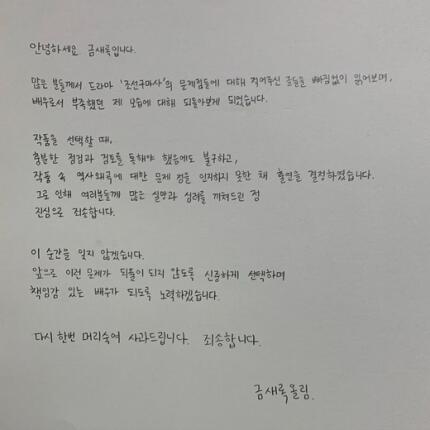 안녕하세요. 금새록입니다.
많은 분들께서 드라마 '조선구마사'의 문제점들에 대해 적어주신 글들을 빠짐없이 읽어보며,
배우로서 부족했던 제 모습에 대해 되돌아보게 되었습니다.
작품을 선택할 때,
충분한 점검과 검토를 통해야 했음에도 불구하고,
작품 속 역사왜곡에 대한 문제 점을 인지하지 못한 채 출연을 결정하였습니다.
그로 인해 여러분들께 많은 실망과 심려를 끼쳐드린 점
진심으로 죄송합니다.
이 순간을 잊지 않겠습니다.
앞으로 이런 문제가 되풀이 되지 않도록 신중하게 선택하며
책임감 있는 배우가 되도록 노력하겠습니다.
다시 한번 머리숙여 사과드립니다. 죄송합니다.
금새록 올림.